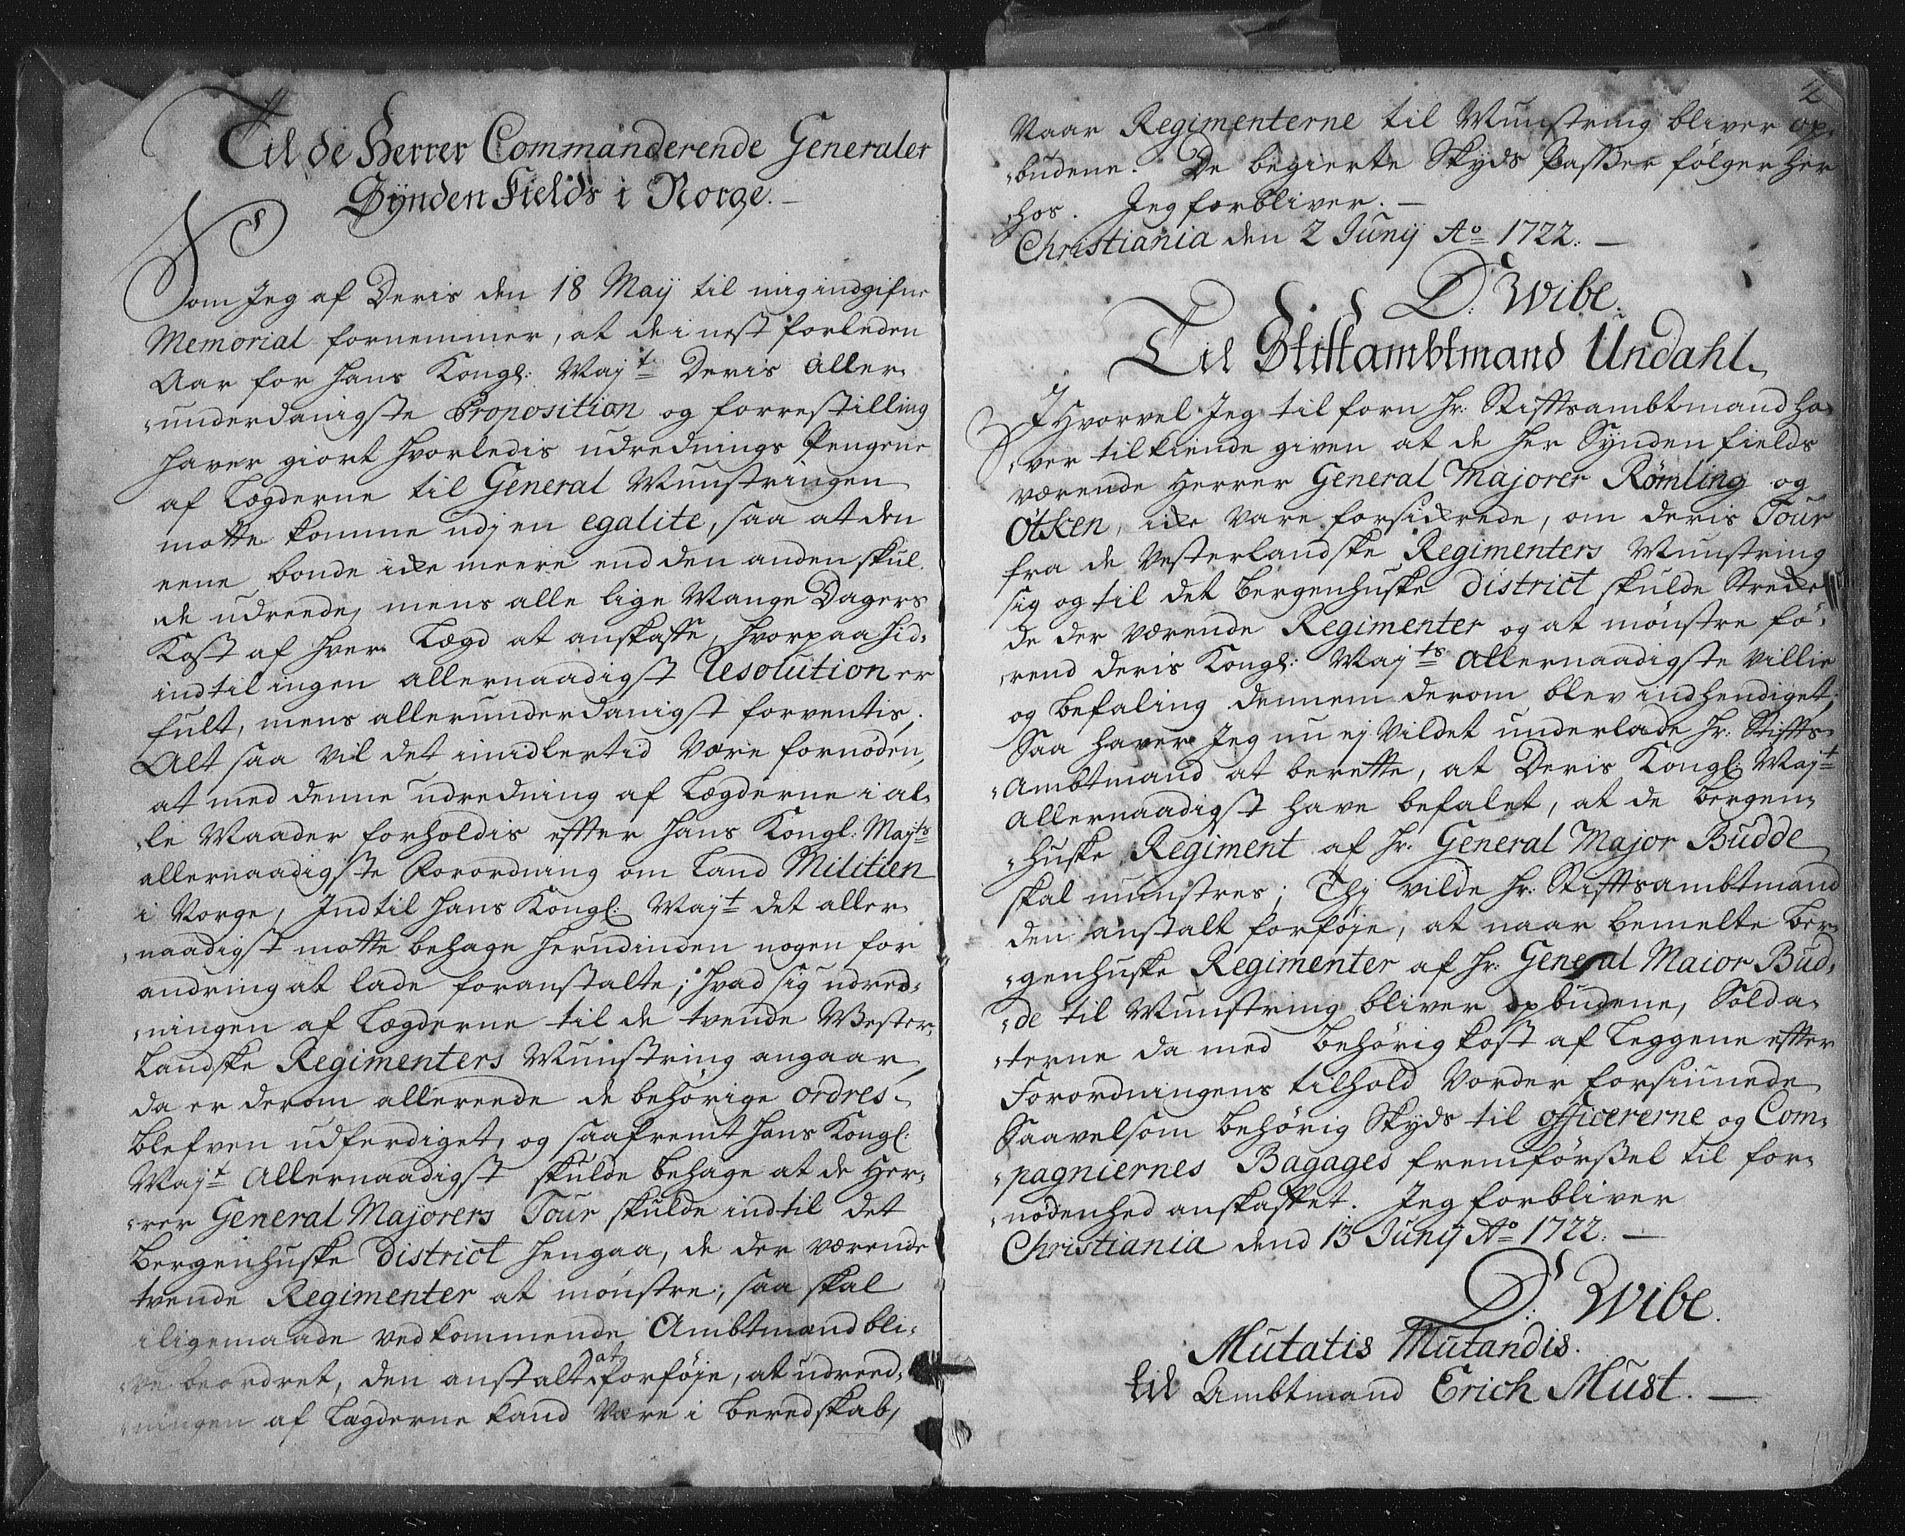 Til de Herrer Commanderende Generaler
Synden Fields i Norge. –
Som Jeg af Deris den 18 Maij til mig indgifne
Memorial fornemmer, at de i nest forleden
Aar for Hans Kongl: Majt Deris Aller-
underdanigste Proposition og forrestilling
haver giort hvorledis udrednings Pengene
af Lægderne til General Munstringen
motte komme udj en egalite, saa at den
eene bonde icke meere end den anden skul-
de udreede, mens alle lige Mange Dagers
Kost af hver Lægd at anskaffe, hvorpaa hid-
indtil ingen allernaadigst Resolution er
fult, mens allerunderdanigst forventis;
Alt saa vil det imidlertid være fornøden,
at med denne udredning af Lægderne i al-
le Maader forholdis effter Hans Kongl. Majts
allernaadigste Forordning om Land Militien
i Norge, Indtil Hans Kongl: Majt det aller-
naadigst motte behage herudinden nogen for
andring at lade foranstalte; hvad sig udred-
ningen af Lægderne til de tvende Wester-
Landske Regimenters Munstring angaar,
da er derom allereede de behörige ordres
blefven udferdiget, og saafremt Hans Kongl:
Majt Allernaadigst skulde behage at de Her-
rer General Majorers Tour skulde indtil det
Bergenhuske District hengaa, de der værende
tvende Regimenter at mönstre, saa skal
iligemaade vedkommende Ambtmænd bli-
ve beordret, den anstalt at forföje, at udreed-
ningen af Lægderne kand være i beredskab,
2
Naar Regimenterne til Munstring bliver op-
budene. De begierte Skyds Passer følger her
hos. Jeg forbliver. –
Christiania den 2 Junij Ao 1722. –
D: Wibe.
Til Stiftambtmand Undahl
Ihvorvel Jeg til forn Hr: Stifftsambtmand ha-
ver tilkiende given at de her Synden fields
værende Herrer General Majorer Römling og
Ötken, icke vare forsickrede, om deris Tour
fra de Vesterlandske Regimenters Munstring
sig og til det Bergenhuske District skulde Strecke
de der værende Regimenter og at mönstre fö-
rend deris Kongl: Majts Allernaadigste villie
og befaling dennem derom blev indhendiget;
Saa haver Jeg nu ej vildet underlade Hr: Stiffts-
Ambtmand at berette, at Deris Kongl: Majt
Allernaadigst have befalet, at de Bergen-
huske Regiment af Hr: General Major Budde
skal munstres; Thj vilde Hr: Stifftsambtmand
den anstalt forföje, at naar bemelte Ber-
genhuske Regimenter af Hr: General Maior Bud-
de til Munstring bliver opbudene, Solda-
terne da med behörig kost af Leggene effter
Forordningens tilhold vorder forsiunede
Saavelsom behörig Skyds til officererne og Com-
pagniernes Bagages fremförßel til for-
nödenhed anskaffet. Jeg forbliver
Christiania dend 13 Junij Ao 1722. –
D: Wibe.
Mutatis Mutandis.
til Ambtmand Erich Must. –